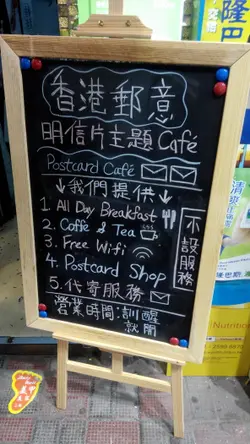 香港郵意
明信片主題 Café
Postcard Café
↓我們提供↓
1. All Day Breakfast
2. Coffe & Tea
3. Free Wifi
4. Postcard Shop
5. 代寄服務
不設服務
營業時間:訓醒
就開
隆
巴
清爽
Nutrition